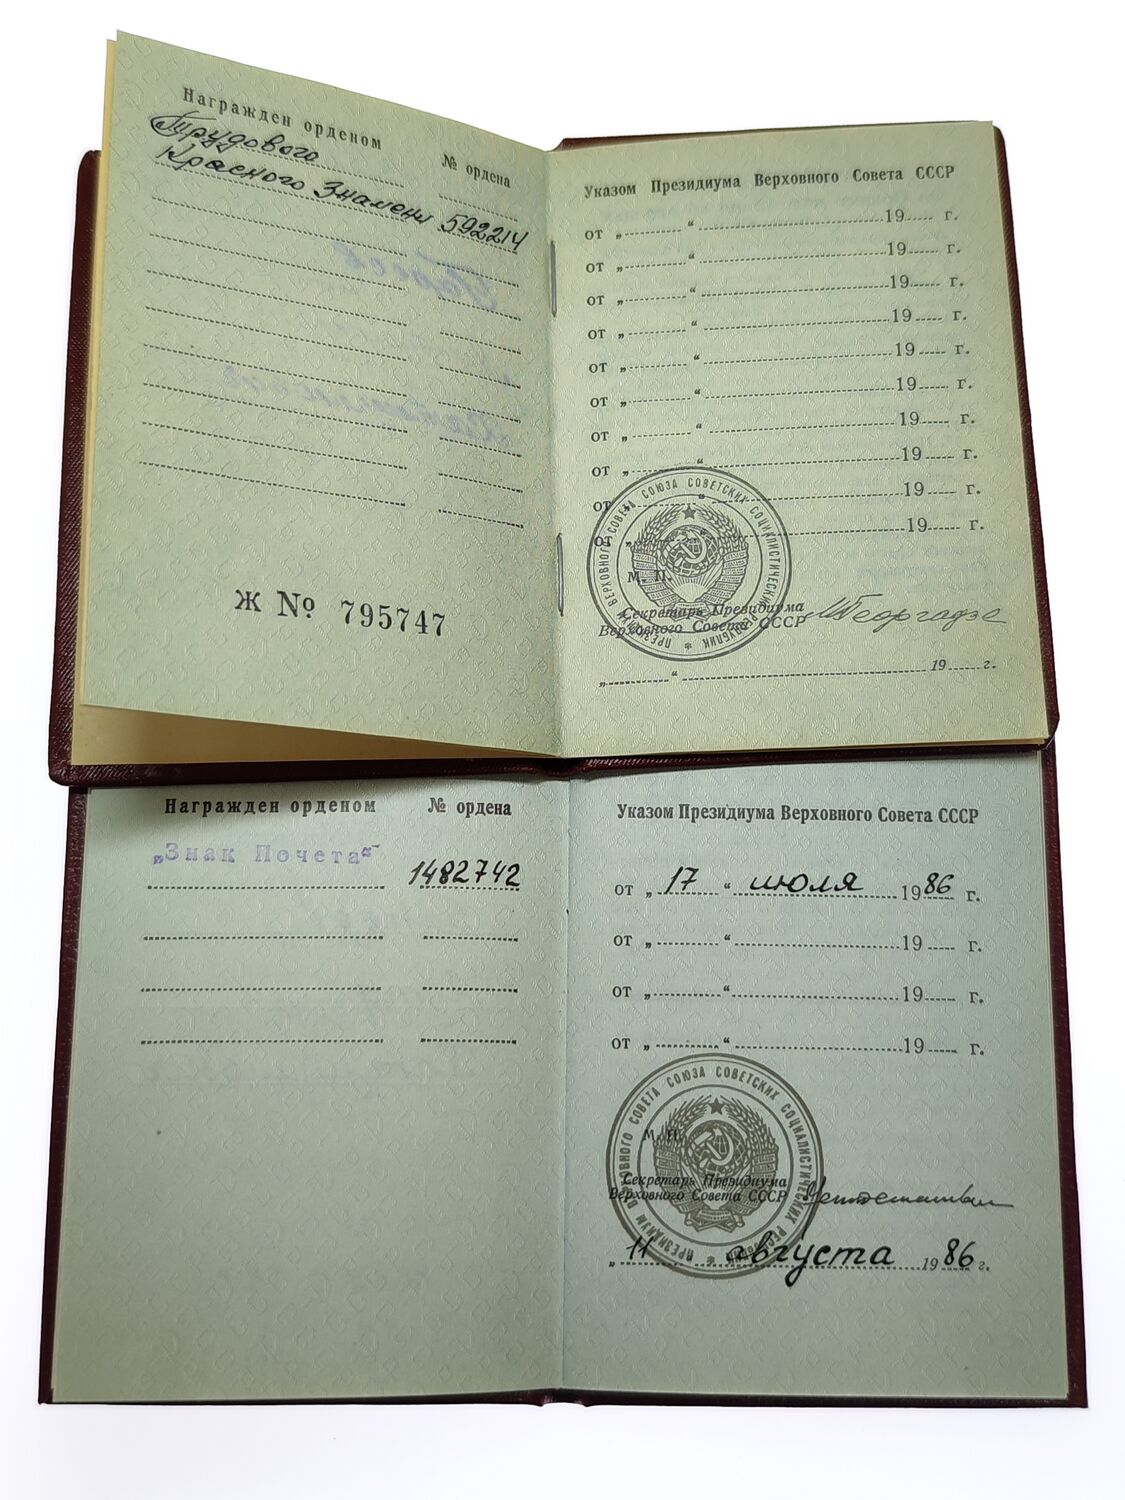 Награжден орденом
№ ордена
Трудового
Красного Знамени 592214
Ж № 795747
Указом Президиума Верховного Совета СССР
от „ “ 19 г.
от „ “ 19 г.
от „ “ 19 г.
от „ “ 19 г.
от „ “ 19 г.
от „ “ 19 г.
от „ “ 19 г.
от „ “ 19 г.
от „ “ 19 г.
от „ “ 19 г.
ПРЕЗИДИУМ ВЕРХОВНОГО СОВЕТА СОЮЗА СОВЕТСКИХ СОЦИАЛИСТИЧЕСКИХ РЕСПУБЛИК
М. П.
Секретарь Президиума
Верховного Совета СССР МГеоргадзе
„ “ 19 г.
Награжден орденом № ордена
„Знак Почета“ 1482742
Указом Президиума Верховного Совета СССР
от „ 17 “ июля 1986 г.
от „ “ 19 г.
от „ “ 19 г.
от „ “ 19 г.
ПРЕЗИДИУМ ВЕРХОВНОГО СОВЕТА СОЮЗА СОВЕТСКИХ СОЦИАЛИСТИЧЕСКИХ РЕСПУБЛИК
М. П.
Секретарь Президиума
Верховного Совета СССР
„ 11 августа 1986 г.